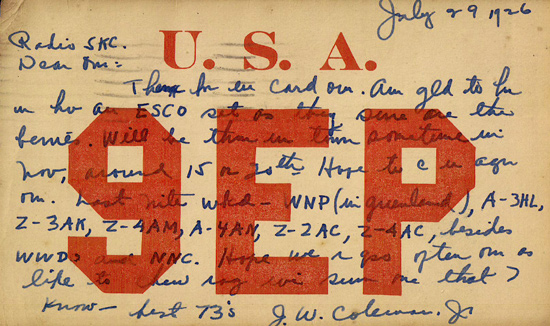 July 29 1926
U. S. A.
Radio 5KC.
Dear Om:
Thanx for ur card om. Am gld to hr
u hv an ESCO set as they sure are the
berries. Will be thru ur town sometime in
Nov, around 15 or 20th Hope to c u agn
om. Last nite wkd - WNP (in greenland), A-3HL,
Z-3AK, Z-4AM, A-4AN, Z-2AC, Z-4AC, besides
WWDO and NNC. Hope we r qso often om as
like to chew rag wi sum one that
Know - best 73's J. W. Coleman, Jr
9EP